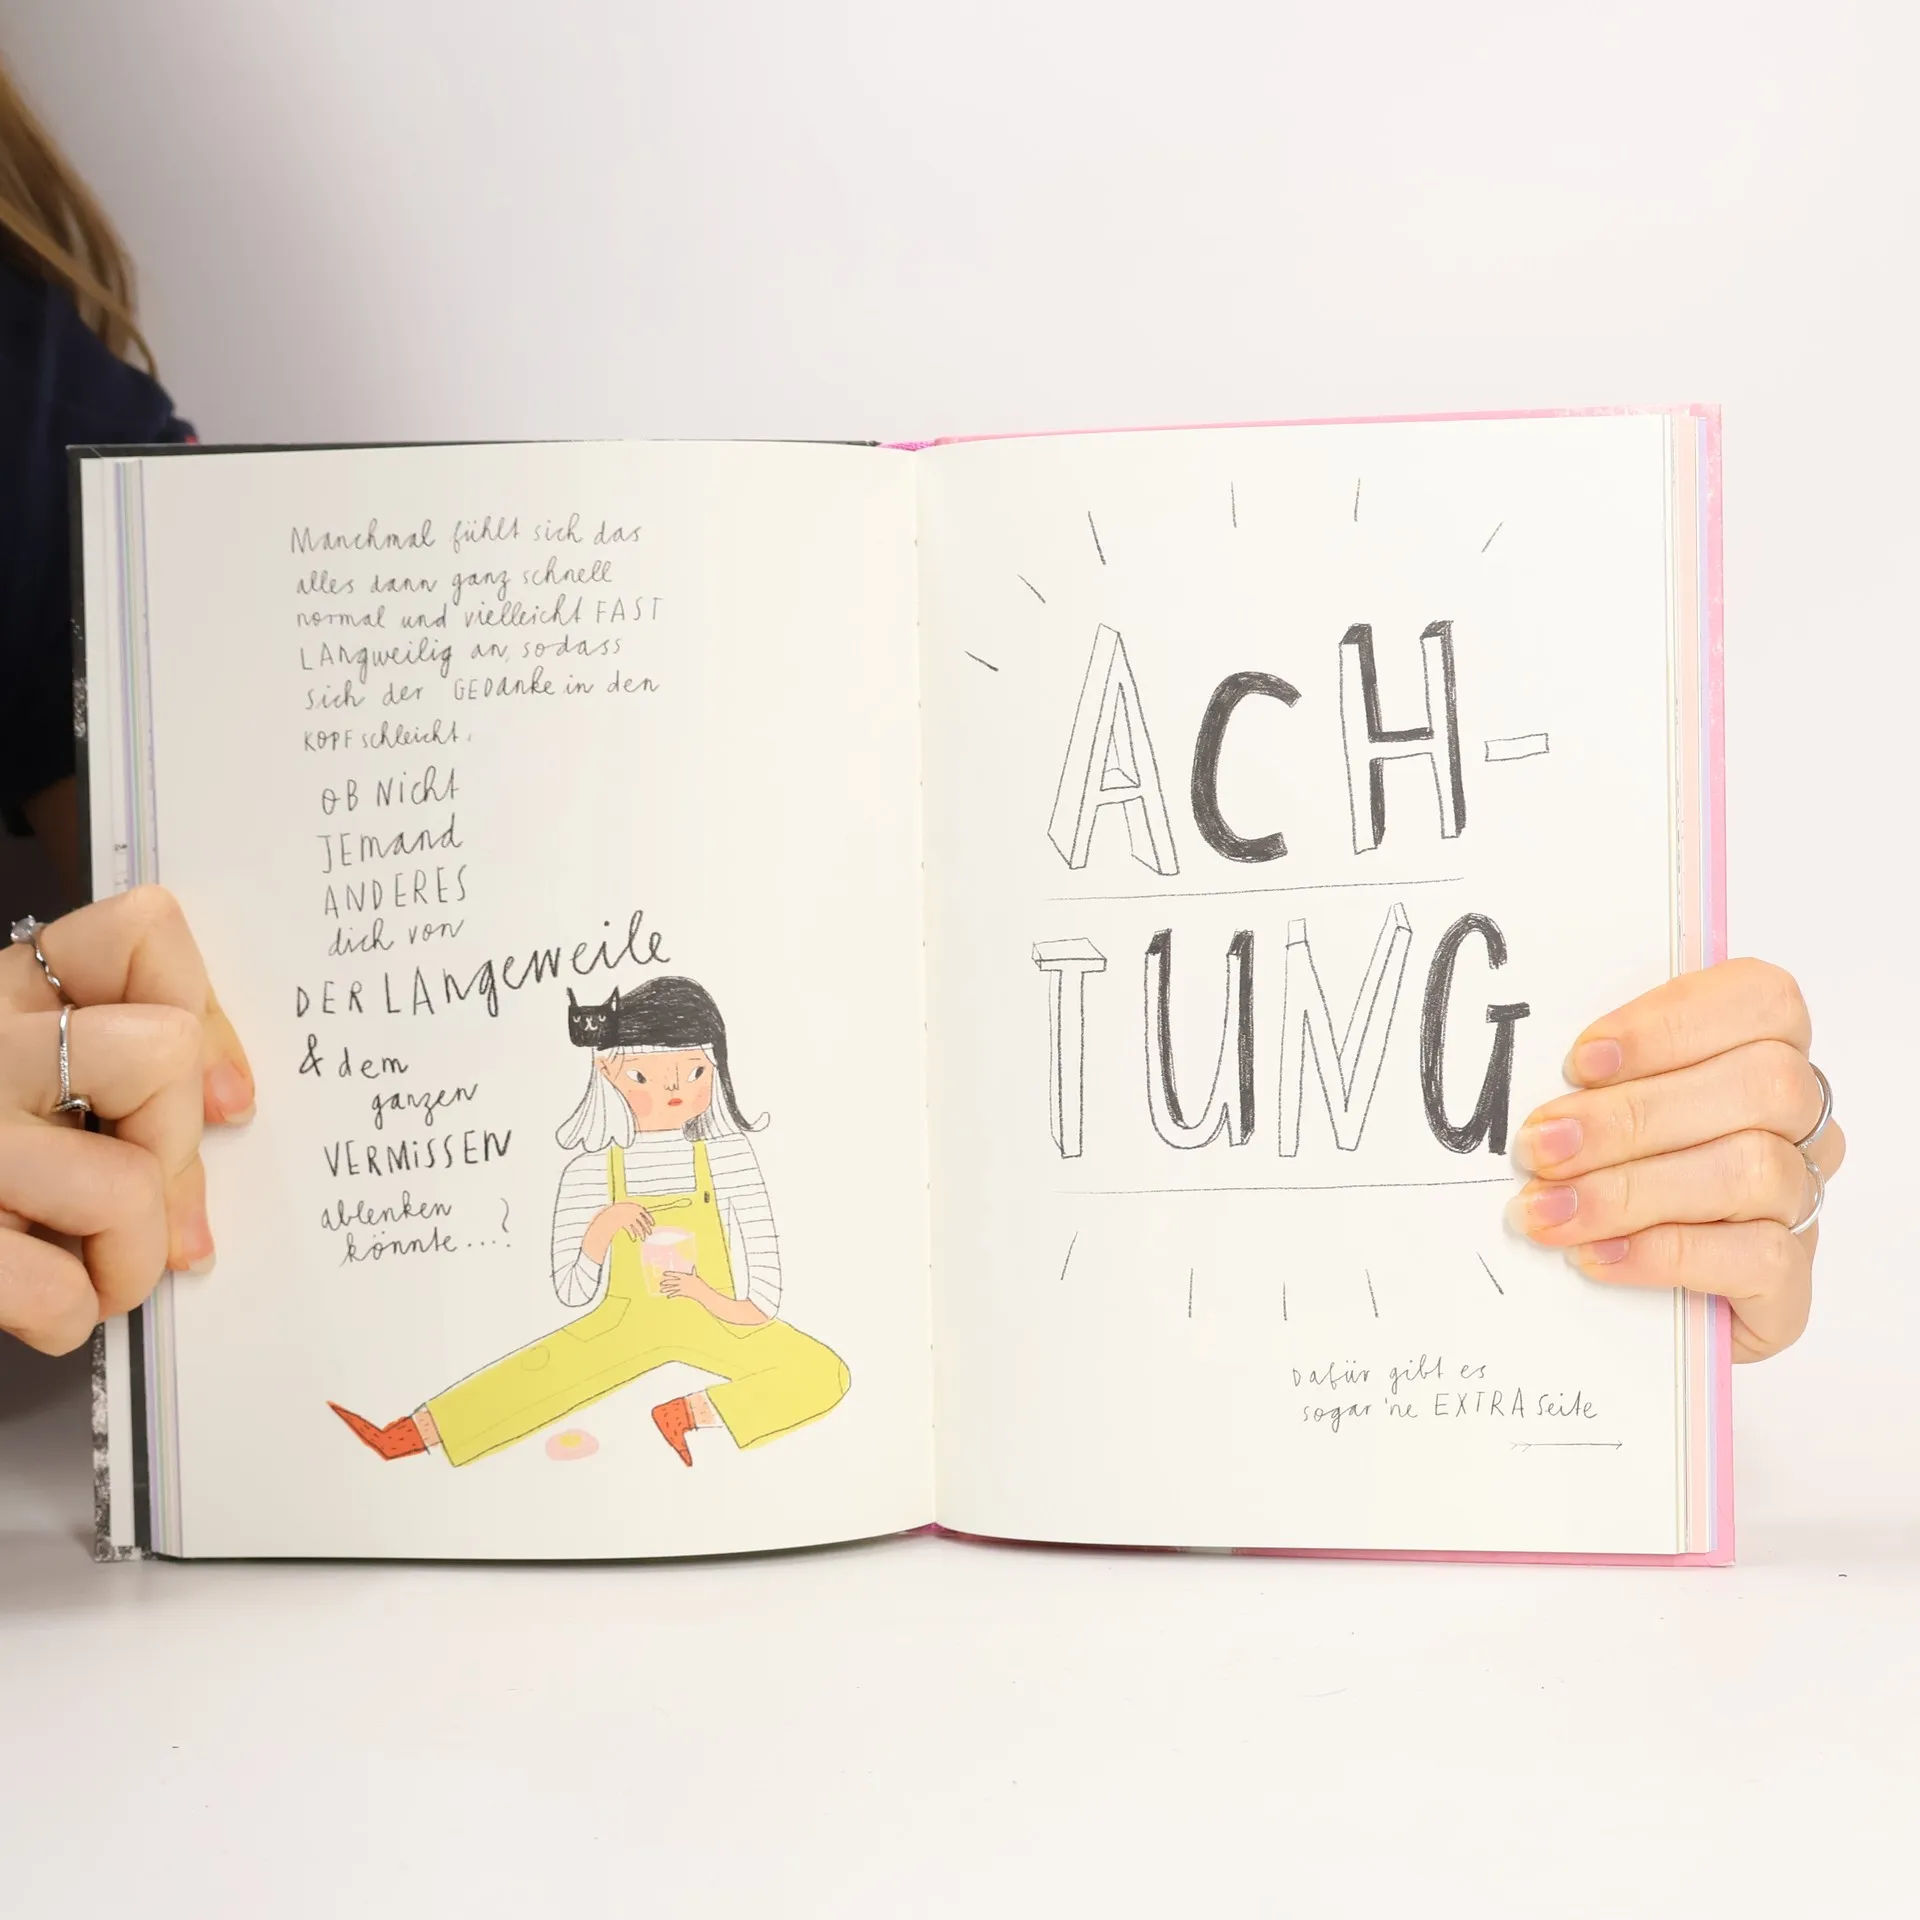 Manchmal fühlt sich das
alles dann ganz schnell
normal und vielleicht FAST
LANgweilig an, sodass
sich der GEDanke in den
KOPF schleicht,
OB Nicht
JEmand
ANDERES
dich von
DER LANgeweile
& dem
ganzen
VERMiSSEN
ablenken
könnte....?
ACH-
TUNG
Dafür gibt es
sogar 'ne EXTRA Seite